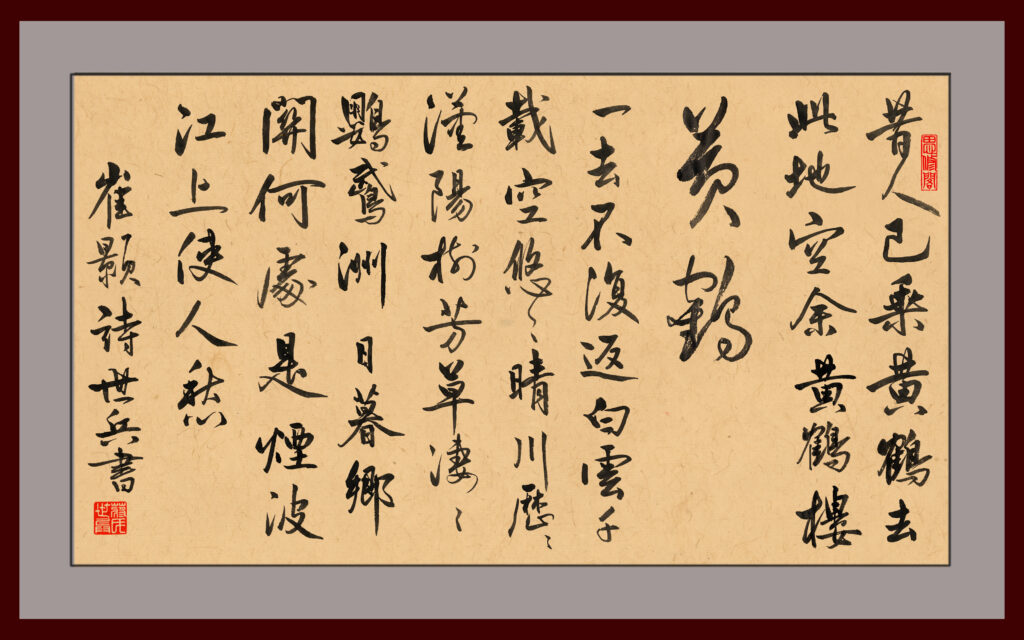 昔人已乘黄鶴去
此地空余黄鶴樓
黄鶴
一去不復返白雲千
載空悠〻晴川歷〻
漢陽樹芳草淒〻
鸚鵡洲日暮鄉
關何處是煙波
江上使人愁
崔顥詩世兵書